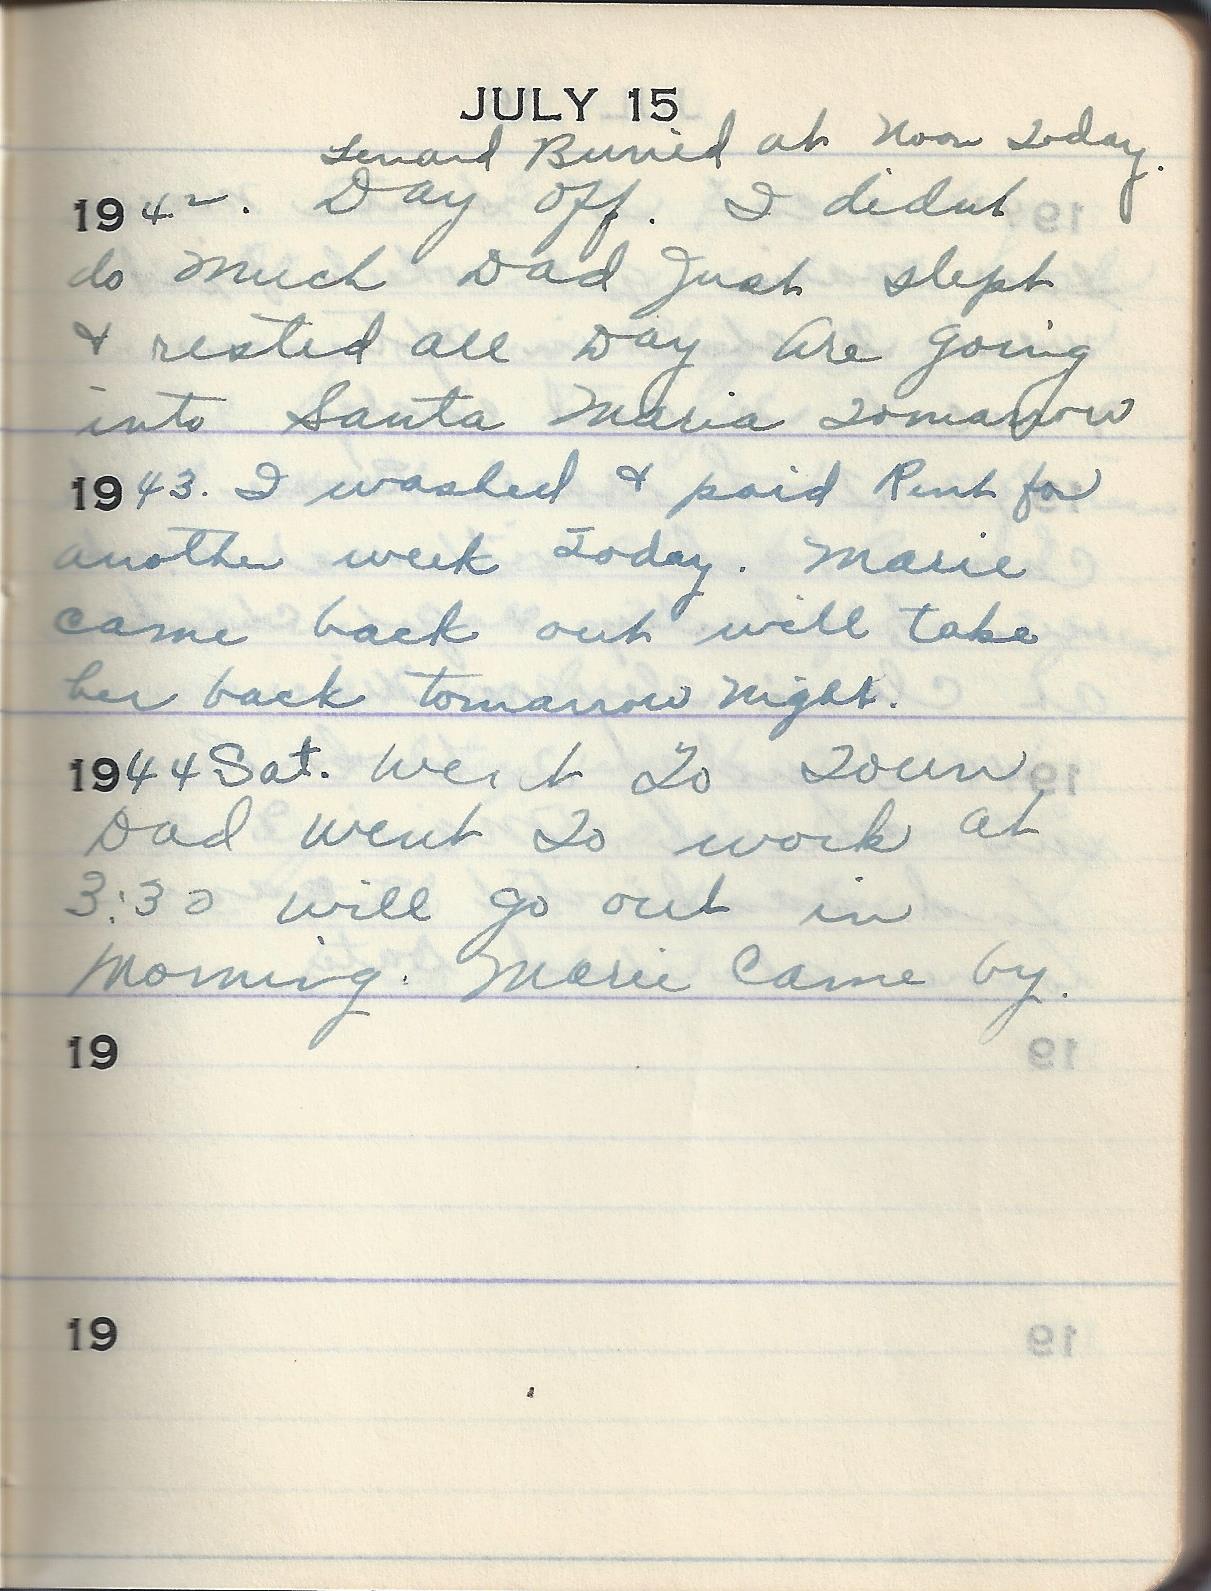 JULY 15
Lenard Buried at Noon Today.
1942. Day off. I didnt
do much Dad Just slept
& rested all Day Are going
into Santa Maria Tomarrow
1943. I washed & paid Rent for
another week Today. Marie
came back out will take
her back tomarrow Night.
1944 Sat. Went To Town
Dad went To work at
3:30 will go out in
Morning. Marie Came by.
19
19